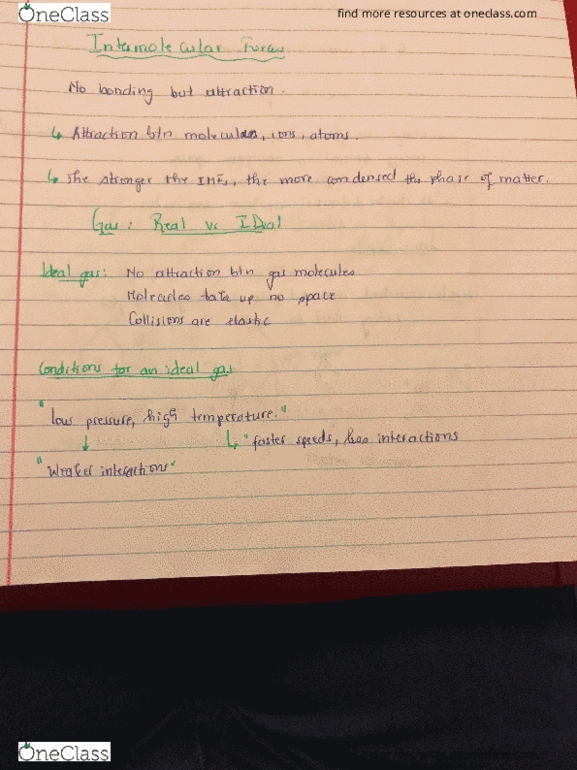 OneClass
find more resources at oneclass.com
Intermolecular Forces
No bonding but attraction.
↳ Attraction btn molecules, ions, atoms.
↳ The stronger the IMFs, the more condensed the phase of matter.
Gas: Real vs IDeal
Ideal gas: No attraction btn gas molecules
Molecules take up no space
Collisions are elastic
Conditions for an ideal gas
"low pressure, high temperature."
↓ ↳ "faster speeds, less interactions
"Weaker interactions"
OneClass